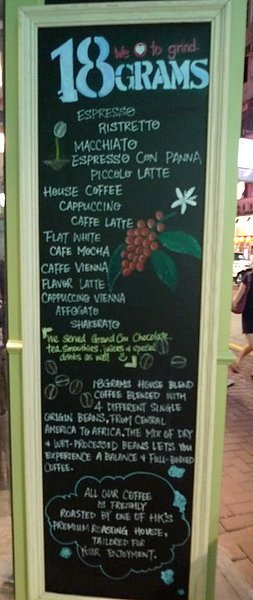 We ♥ to grind.
18GRAMS
ESPRESSO
RISTRETTO
MACCHIATO
ESPRESSO CON PANNA
PICCOLO LATTE
HOUSE COFFEE
CAPPUCCINO
CAFFE LATTE
FLAT WHITE
CAFE MOCHA
CAFFE VIENNA
FLAVOR LATTE
CAPPUCCINO VIENNA
AFFOGATO
SHAKERATO
We served Grand Cru Chocolate,
tea, Smoothies, juices & special
drinks as well
18GRAMS HOUSE BLEND
COFFEE BLENDED WITH
4 DIFFERENT SINGLE
ORIGIN BEANS, FROM CENTRAL
AMERICA TO AFRICA. THE MIX OF DRY
& WET-PROCESSED BEANS LETS YOU
EXPERIENCE A BALANCE & FULL-BODIED
COFFEE.
ALL OUR COFFEE
IS FRESHLY
ROASTED BY ONE OF HK'S
PREMIUM ROASTING HOUSE,
TAILORED FOR
YOUR ENJOYMENT.